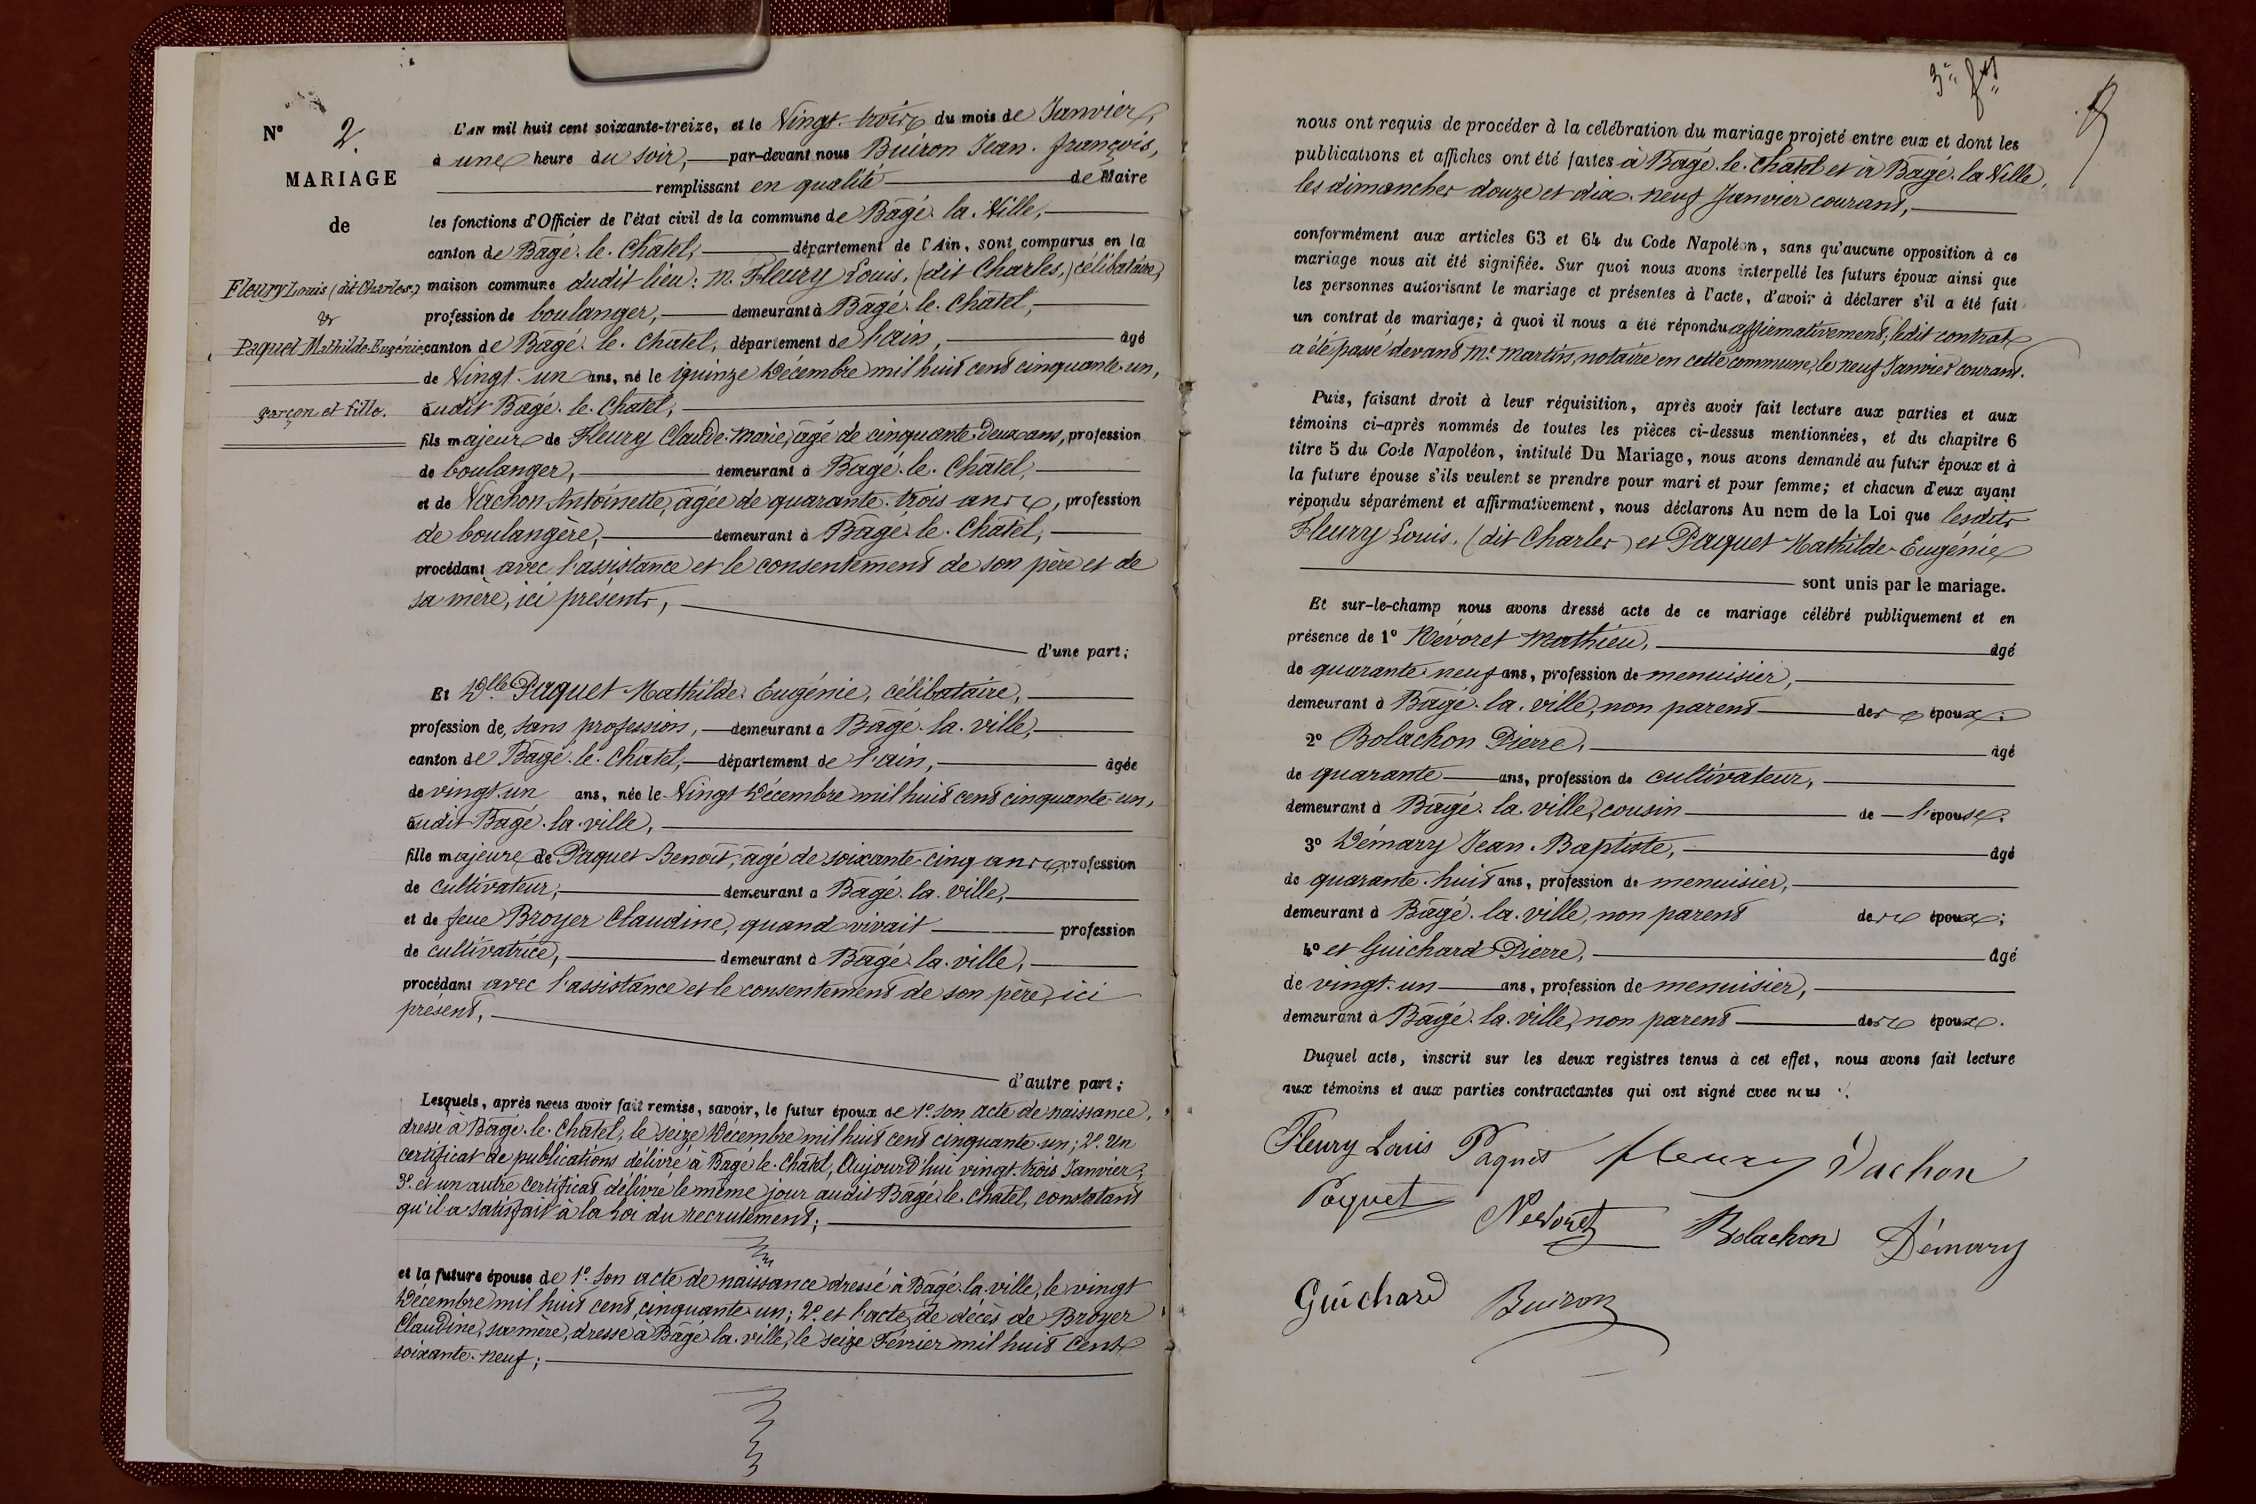 N° 2.
MARIAGE
de
Fleury Louis (dit Charles)
&
Paquet Mathilde Eugénie
garçon et fille.
L'AN mil huit cent soixante-treize, et le Vingt-trois du mois de Janvier,
à une heure du soir, par-devant nous Buiron Jean-François,
remplissant en qualité de Maire
les fonctions d'Officier de l'état civil de la commune de Bâgé-la-Ville,
canton de Bâgé-le-Châtel, département de l'Ain, sont comparus en la
maison commune dudit lieu: M. Fleury Louis, (dit Charles,) célibataire,
profession de boulanger, demeurant à Bâgé-le-Châtel,
canton de Bâgé-le-Châtel, département de l'ain, âgé
de Vingt-un ans, né le quinze Décembre mil huit cent cinquante-un,
audit Bâgé-le-Châtel,
fils majeur de Fleury Claude-Marie, âgé de cinquante-Deux ans, profession
de boulanger, demeurant à Bâgé-le-Châtel,
et de Vachon Antoinette, âgée de quarante-trois ans, profession
de boulangère, demeurant à Bâgé-le-Châtel,
procédant avec l'assistance et le consentement de son père et de
sa mère, ici présents,
d'une part;
Et Dlle Paquet Mathilde-Eugénie, célibataire,
profession de, sans profession, demeurant à Bâgé-la-ville,
canton de Bâgé-le-Châtel, département de l'ain, âgée
de vingt-un ans, née le Vingt Décembre mil huit cent cinquante-un,
audit Bâgé-la-ville,
fille majeure de Paquet Benoît, âgé de soixante-cinq ans, profession
de cultivateur, demeurant à Bâgé-la-ville,
et de feue Broyer Claudine, quand vivait profession
de cultivatrice, demeurant à Bâgé-la-ville,
procédant avec l'assistance et le consentement de son père, ici
présent,
d'autre part;
Lesquels, après nous avoir fait remise, savoir, le futur époux de 1°. son acte de naissance,
dressé à Bâgé-le-Châtel, le seize Décembre mil huit cent cinquante-un; 2°. Un
certificat de publications délivré à Bâgé-le-Châtel, Aujourd'hui vingt-trois Janvier;
3°. et un autre certificat délivré le même jour audit Bâgé-le-Châtel, constatant
qu'il a satisfait à la Loi du recrutement;
et la future épouse de 1°. son acte de naissance dressé à Bâgé-la-ville, le vingt
Décembre mil huit cent cinquante-un; 2°. et l'acte de décès de Broyer
Claudine, sa mère, dressé à Bâgé-la-ville, le seize Février mil huit cent
soixante-neuf;
3e ft
nous ont requis de procéder à la célébration du mariage projeté entre eux et dont les
publications et affiches ont été faites à Bâgé-le-Châtel et à Bâgé-la-Ville,
les dimanches douze et dix-neuf Janvier courant,
conformément aux articles 63 et 64 du Code Napoléon, sans qu'aucune opposition à ce
mariage nous ait été signifiée. Sur quoi nous avons interpellé les futurs époux ainsi que
les personnes autorisant le mariage et présentes à l'acte, d'avoir à déclarer s'il a été fait
un contrat de mariage; à quoi il nous a été répondu affirmativement; ledit contrat
a été passé devant Me. Martin, notaire en cette commune, le neuf Janvier courant.
Puis, faisant droit à leur réquisition, après avoir fait lecture aux parties et aux
témoins ci-après nommés de toutes les pièces ci-dessus mentionnées, et du chapitre 6
titre 5 du Code Napoléon, intitulé Du Mariage, nous avons demandé au futur époux et à
la future épouse s'ils veulent se prendre pour mari et pour femme; et chacun d'eux ayant
répondu séparément et affirmativement, nous déclarons Au nom de la Loi que lesdits
Fleury Louis, (dit Charles) et Paquet Mathilde-Eugénie
sont unis par le mariage.
Et sur-le-champ nous avons dressé acte de ce mariage célébré publiquement et en
présence de 1° Névoret Mathieu, âgé
de quarante-neuf ans, profession de menuisier,
demeurant à Bâgé-la-ville, non parent des époux;
2° Bolachon Pierre, âgé
de quarante ans, profession de cultivateur,
demeurant à Bâgé-la-ville, cousin de l'épouse;
3° Démary Jean-Baptiste, âgé
de quarante-huit ans, profession de menuisier,
demeurant à Bâgé-la-ville, non parent des époux;
4° et Guichard Pierre, âgé
de vingt-un ans, profession de menuisier,
demeurant à Bâgé-la-ville, non parent des époux.
Duquel acte, inscrit sur les deux registres tenus à cet effet, nous avons fait lecture
aux témoins et aux parties contractantes qui ont signé avec nous.
Fleury Louis Paquet fleury Vachon
Paquet Névoret Bolachon Démary
Guichard Buiron